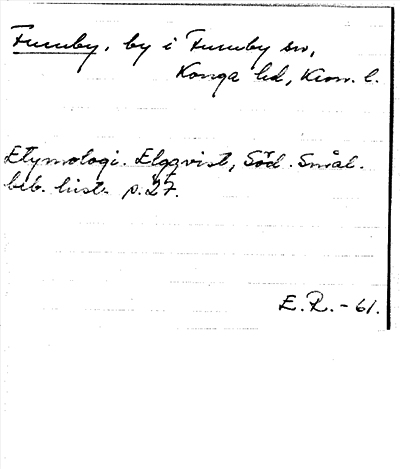 Furuby, by i Furuby sn,
Konga hd, Kron. l.
Etymologi. Elgqvist, Söd. Smål.
beb. hist. p. 27.
E. R. - 61.